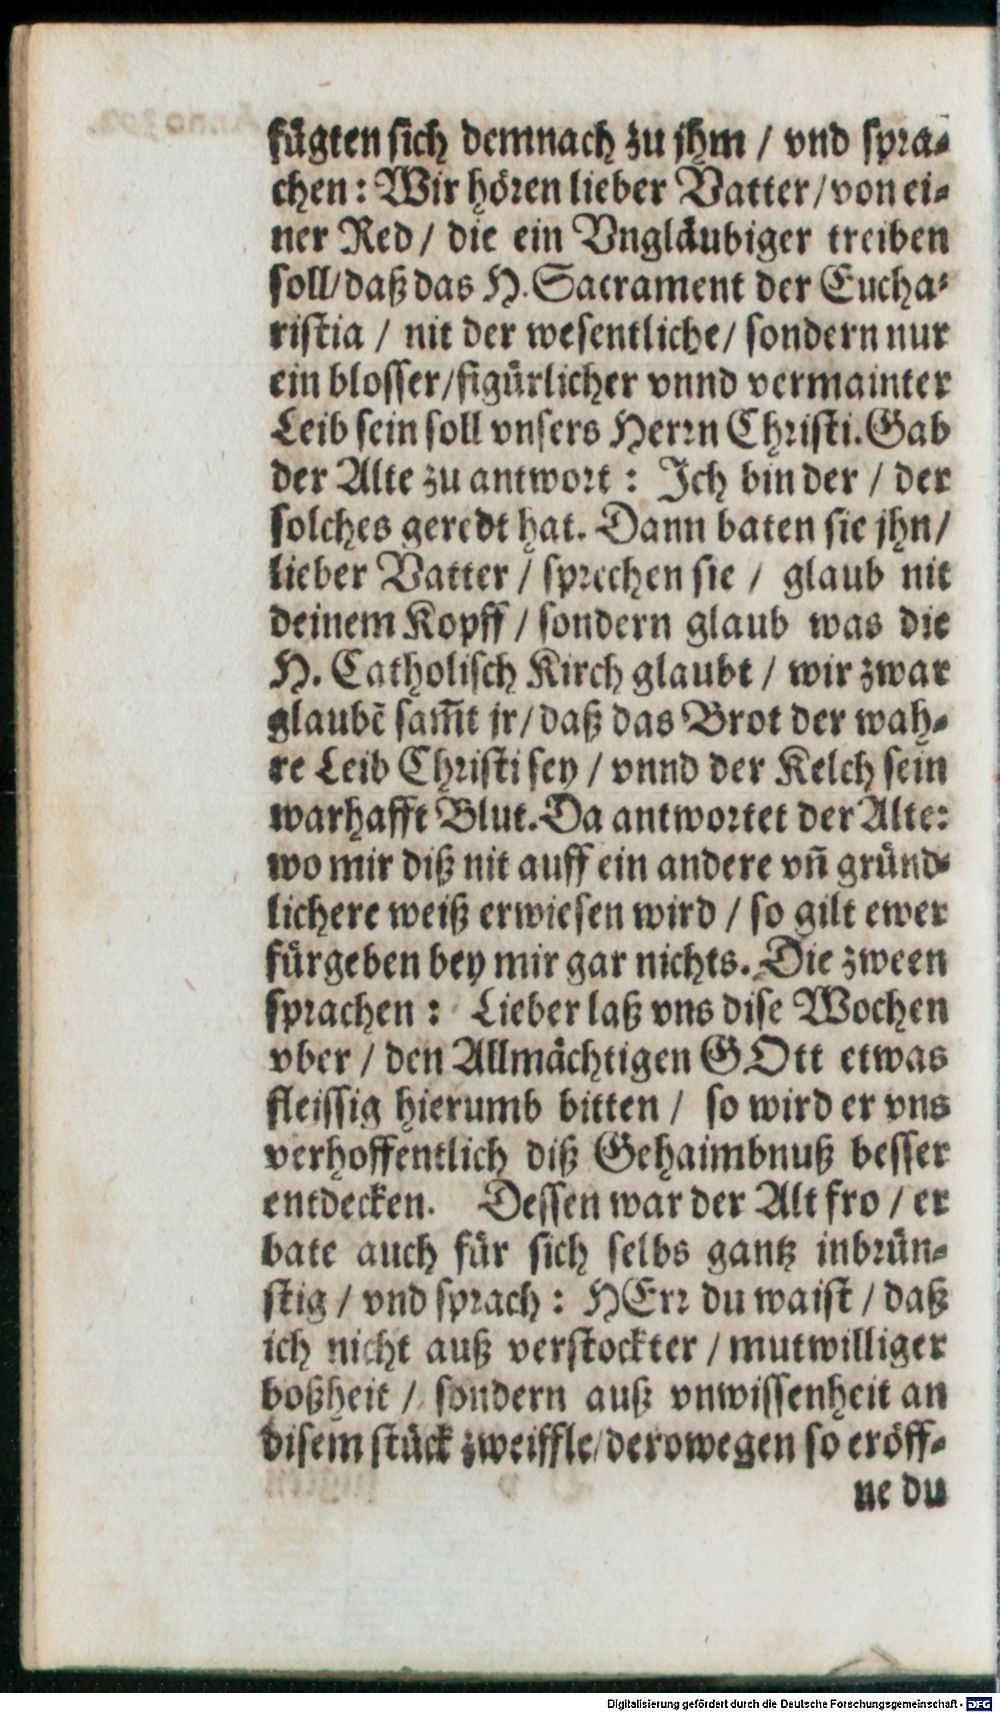 fügten sich demnach zu jhm / vnd spra-
chen: Wir hören lieber Vatter / von ei-
ner Red / die ein Vngläubiger treiben
soll / daß das H. Sacrament der Eucha-
ristia / nit der wesentliche / sondern nur
ein blosser / figürlicher vnnd vermainter
Leib sein soll vnsers Herrn Christi. Gab
der Alte zu antwort: Ich bin der / der
solches geredt hat. Dann baten sie jhn /
lieber Vatter / sprechen sie / glaub nit
deinem Kopff / sondern glaub was die
H. Catholisch Kirch glaubt / wir zwar
glaubē sam̄t jr / daß das Brot der wah-
re Leib Christi sey / vnnd der Kelch sein
warhafft Blut. Da antwortet der Alte:
wo mir diß nit auff ein andere vn̄ gründ-
lichere weiß erwiesen wird / so gilt ewer
fürgeben bey mir gar nichts. Die zween
sprachen: Lieber laß vns dise Wochen
vber / den Allmächtigen GOtt etwas
fleissig hierumb bitten / so wird er vns
verhoffentlich diß Gehaimbnuß besser
entdecken. Dessen war der Alt fro / er
bate auch für sich selbs gantz inbrün-
stig / vnd sprach: HErr du waist / daß
ich nicht auß verstockter / mutwilliger
boßheit / sondern auß vnwissenheit an
disem stück zweiffle / derowegen so eröff-
ne du
Digitalisierung gefördert durch die Deutsche Forschungsgemeinschaft - DFG